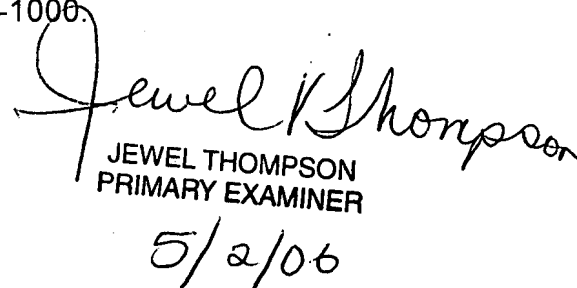 -1000.
Jewel V Thompson
JEWEL THOMPSON
PRIMARY EXAMINER
5/2/06